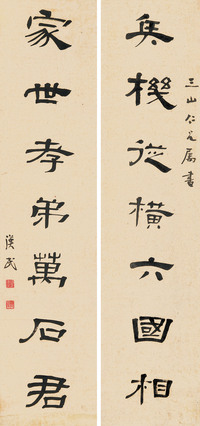 三山仁兄属書
兵機從橫六國相
家世孝弟萬石君
漢民